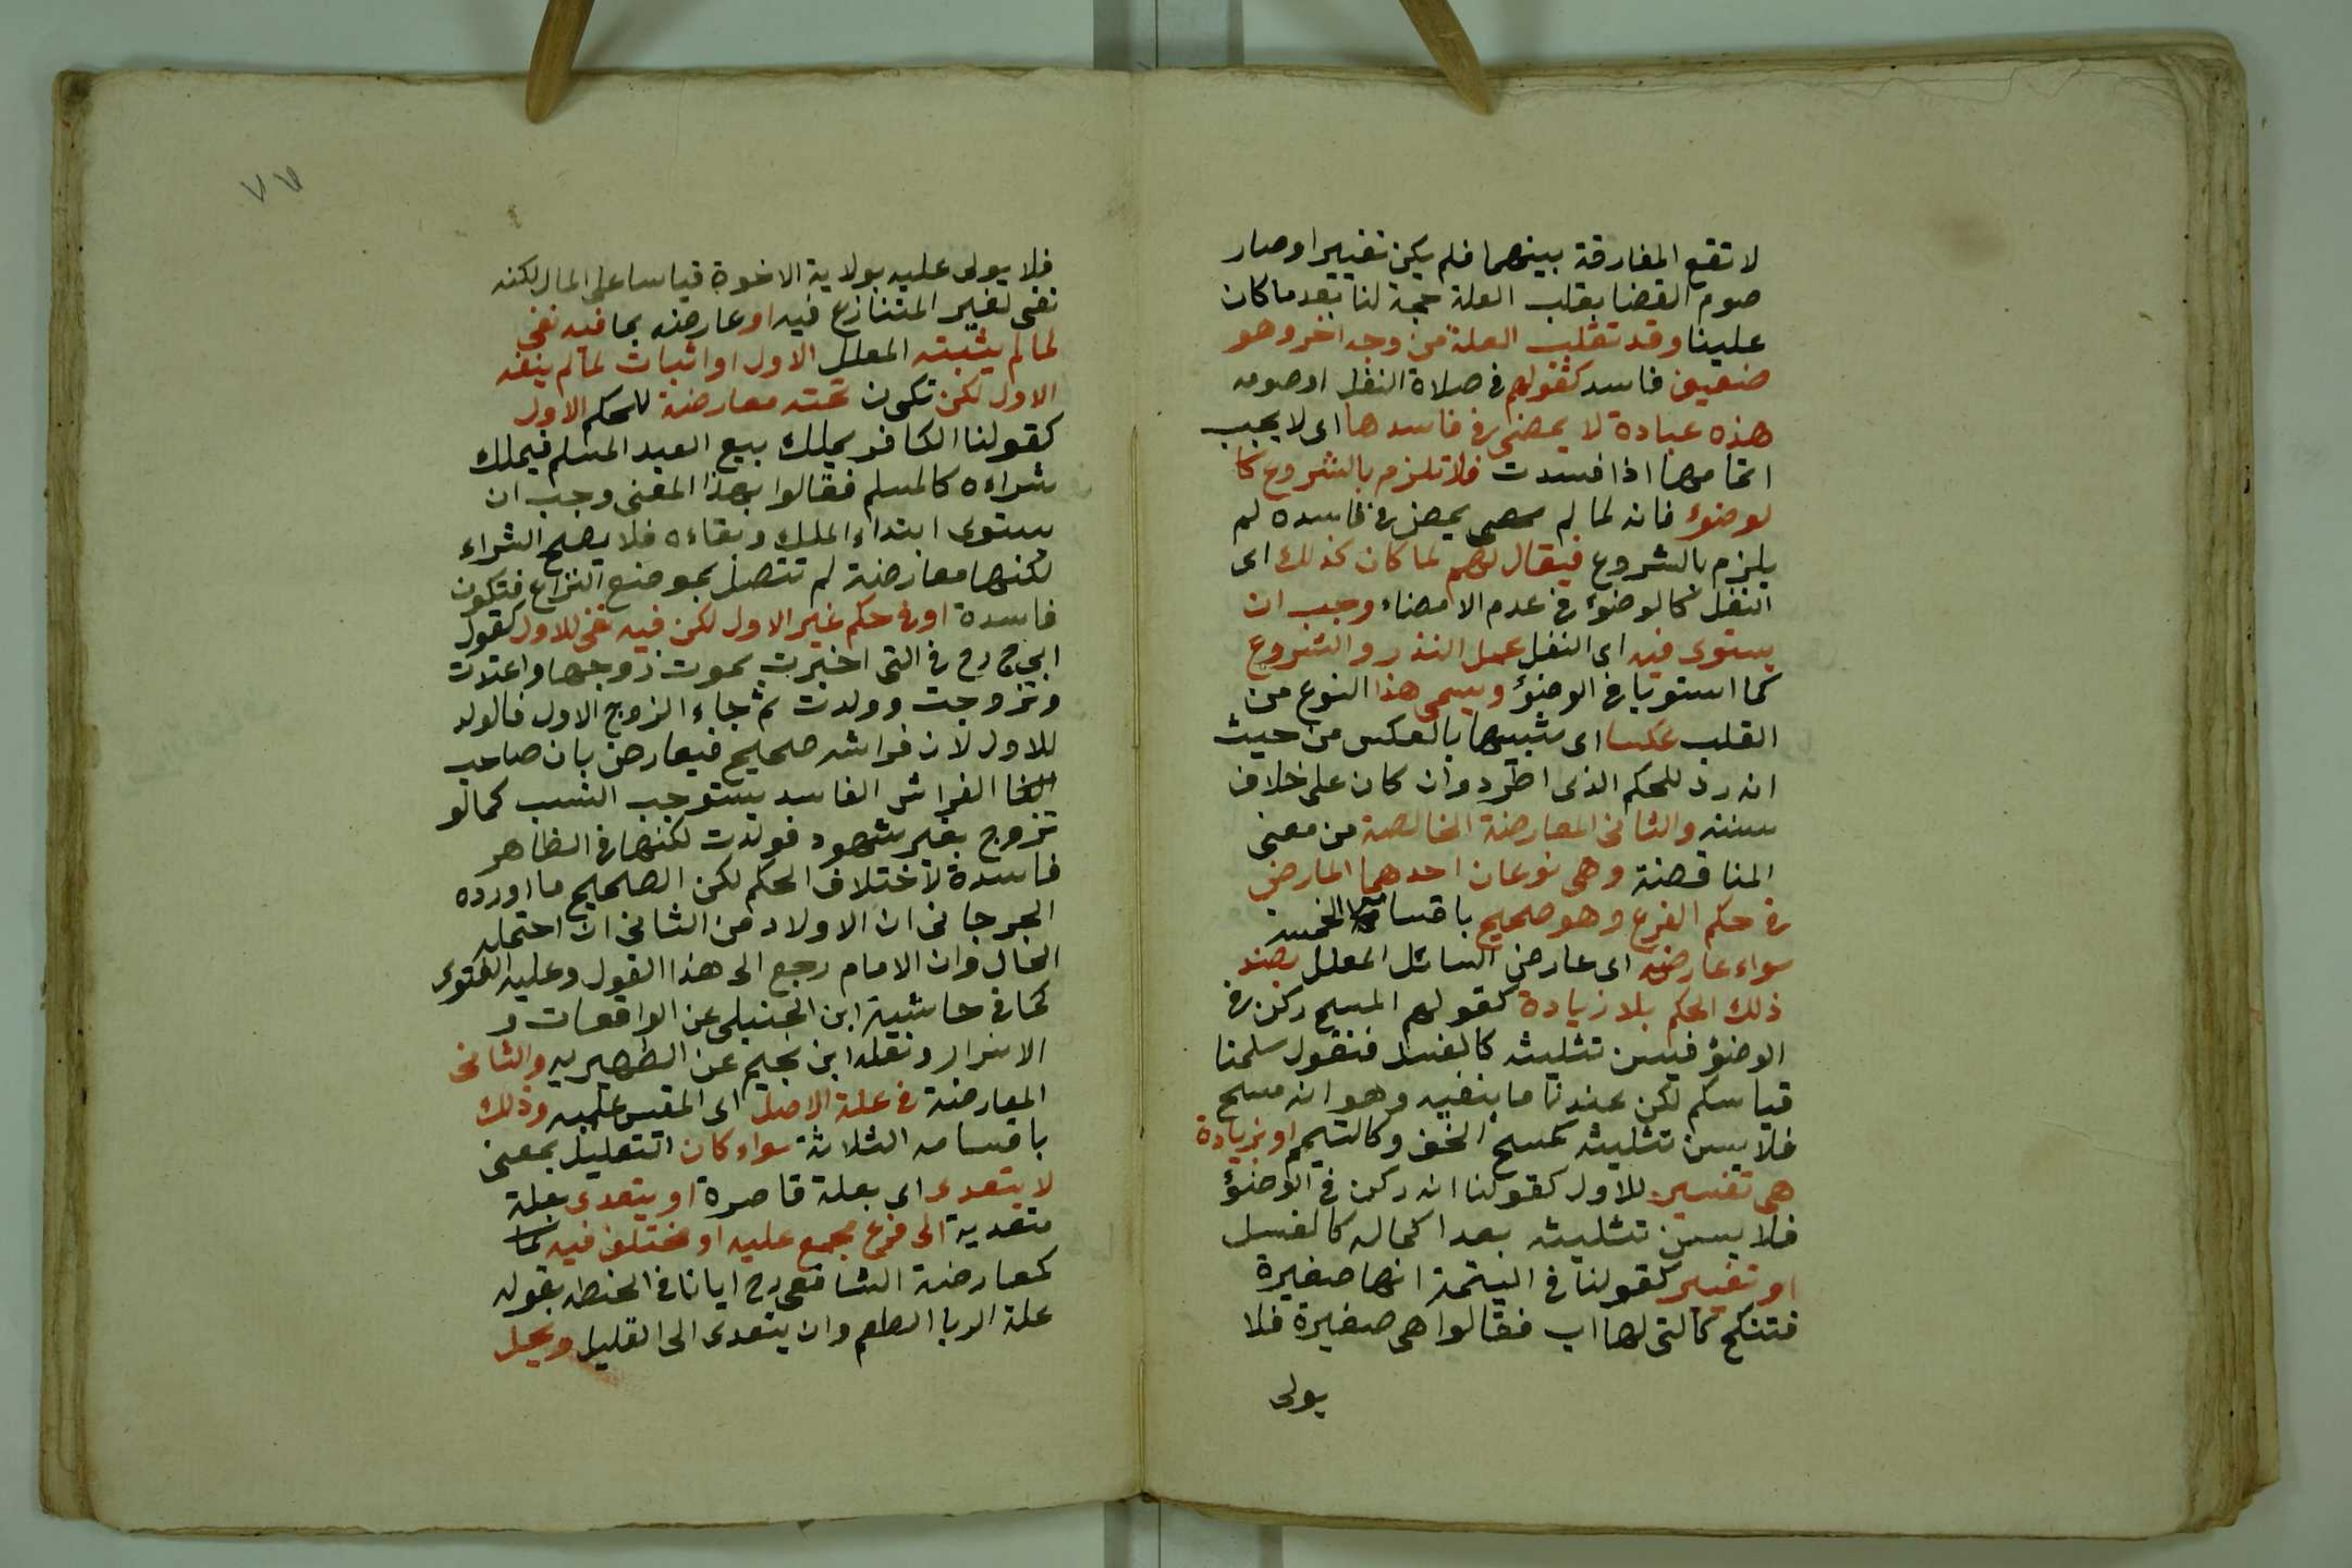 لا تقع المفارقة بينهما فلم يكن تغييرا وصار
صوم القضا بقلب العلة حجة لنا بعد ما كان
علينا وقد تقلب العلة من وجه اخر وهو
ضعيف فاسد كقولهم في صلاة النفل او صومه
هذه عبادة لا يمضى في فاسدها اى لا يجب
اتمامها اذا فسدت فلا تلزم بالشروع كا
لوضوء فانه لما لم يمض في فاسده لم
يلزم بالشروع فيقال لهم لما كان كذلك اى
النفل كالوضوء في عدم الامضاء وجب ان
يستوى فيه اى النفل عمل النذر والشروع
كما استويا في الوضوء ويسمى هذا النوع من
القلب عكسا اى شبيها بالعكس من حيث
انه رد للحكم الذى اطرد وان كان على خلاف
سننه والثانى المعارضة الخالصة من معنى
المناقضة وهى نوعان احدهما المارض
في حكم الفرع وهو صحيح باقسامه الخمسة
سواء عارضه اى عارض السائل المعلل بضد
ذلك الحكم بلا زيادة كقولهم المسح ركن في
الوضوء فيسن تثليثه كالغسل فنقول سلمنا
قياسكم لكن عندنا ما ينفيه وهو انه مسح
فلا يسن تثليثه كمسح الخف وكالتيمم او بزيادة
هى تفسير للاول كقولنا انه ركن في الوضوء
فلا يسن تثليثه بعد اكماله كالغسل
او تغيير كقولنا في اليتيمة انها صغيرة
فتنكح كالتى لها اب فقالوا هى صغيرة فلا
يولى
٧٧
فلا يولى عليه بولاية الاخوة قياسا على المال لكنه
نفى لغير المتنازع فيه او عارضه بما فيه نفى
لما لم يثبته المعلل الاول او اثبات لما لم ينفه
الاول لكن تكون تحته معارضة للحكم الاول
كقولنا الكافر يملك بيع العبد المسلم فيملك
شراءه كالمسلم فقالوا بهذا المعنى وجب ان
يستوى ابتداء الملك وبقاءه فلا يصح الشراء
لكنها معارضة لم تتصل بموضع النزاع فتكون
فاسدة او في حكم غير الاول لكن فيه نفى للاول كقول
ابى ح رح في التى اخبرت بموت زوجها واعتدت
وتزوجت وولدت ثم جاء الزوج الاول فالولد
للاول لان فراشه صحيح فيعارض بان صاحب
الفراش الفاسد يستوجب النسب كما لو
تزوج بغير شهود فولدت لكنها في الظاهر
فاسدة لاختلاف الحكم لكن الصحيح ما اورده
الجرجانى ان الاولاد من الثانى ان احتمله
الحال وان الامام رجع الى هذا القول وعليه الفتوى
كما في حاشية ابن الحنبلى عن الواقعات و
الاسرار ونقله ابن نجيم عن الظهيريه والثانى
المعارضة في علة الاصل اى المقيس عليه وذلك
باقسامه الثلاثة سواء كان التعليل بمعنى
لا يتعدى اى بعلة قاصرة او يتعدى بعلة
متعدية الى فرع مجمع عليه او مختلف فيه كما
كمعارضة الشافعى رح ايانا في الحنطه بقوله
علة الربا الطعم وان يتعدى الى القليل ويحل